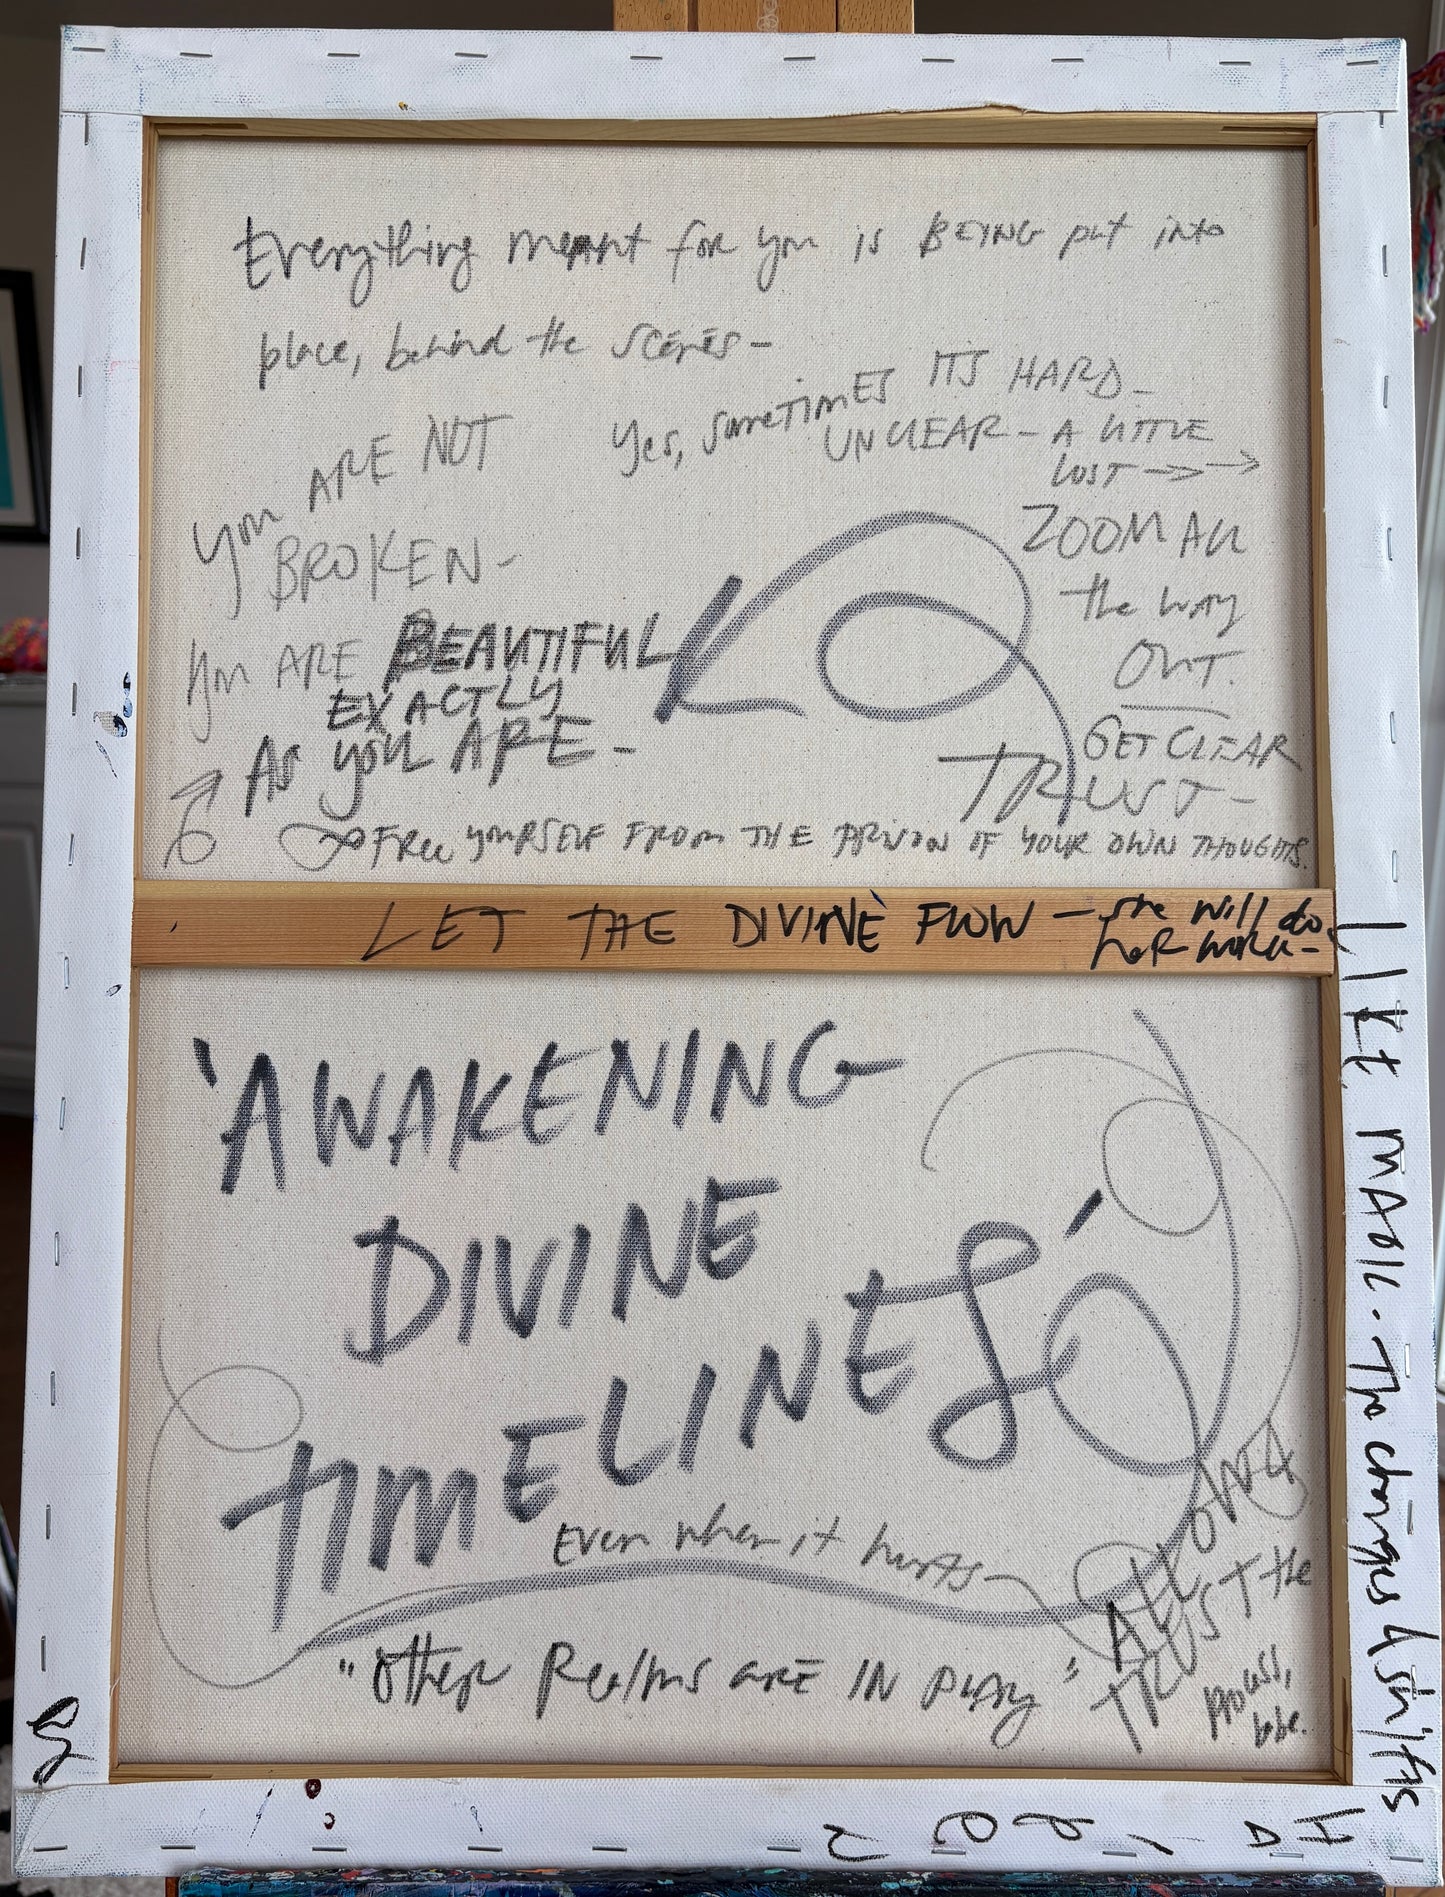 Everything meant for you is BEING put into
place, behind the scenes -
Yes, sometimes IT'S HARD -
UNCLEAR - A LITTLE
LOST
ZOOM All
the way
OUT.
GET CLEAR
TRUST -
You ARE NOT
BROKEN -
You ARE BEAUTIFUL
EXACTLY
AS YOU ARE -
Free yourself FROM THE PRISON OF YOUR OWN THOUGHTS.
LET THE DIVINE FLOW - she will do
her work -
'AWAKENING
DIVINE
TIMELINES'
Even when it hurts -
ALLOWING
TRUST the
process,
babe.
"Other Realms are IN play"
LIKE MAGIC. The changes & shifts